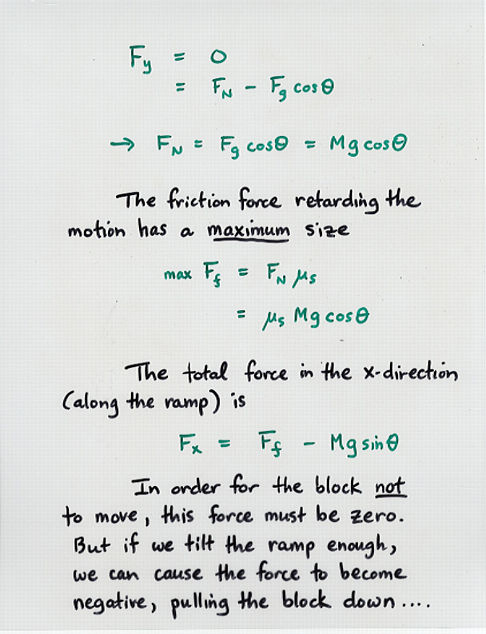 Fy = 0
= FN - Fg cosθ
→ FN = Fg cosθ = Mg cosθ
The friction force retarding the
motion has a maximum size
max Ff = FN μs
= μs Mg cosθ
The total force in the x-direction
(along the ramp) is
Fx = Ff - Mg sinθ
In order for the block not
to move, this force must be zero.
But if we tilt the ramp enough,
we can cause the force to become
negative, pulling the block down ....